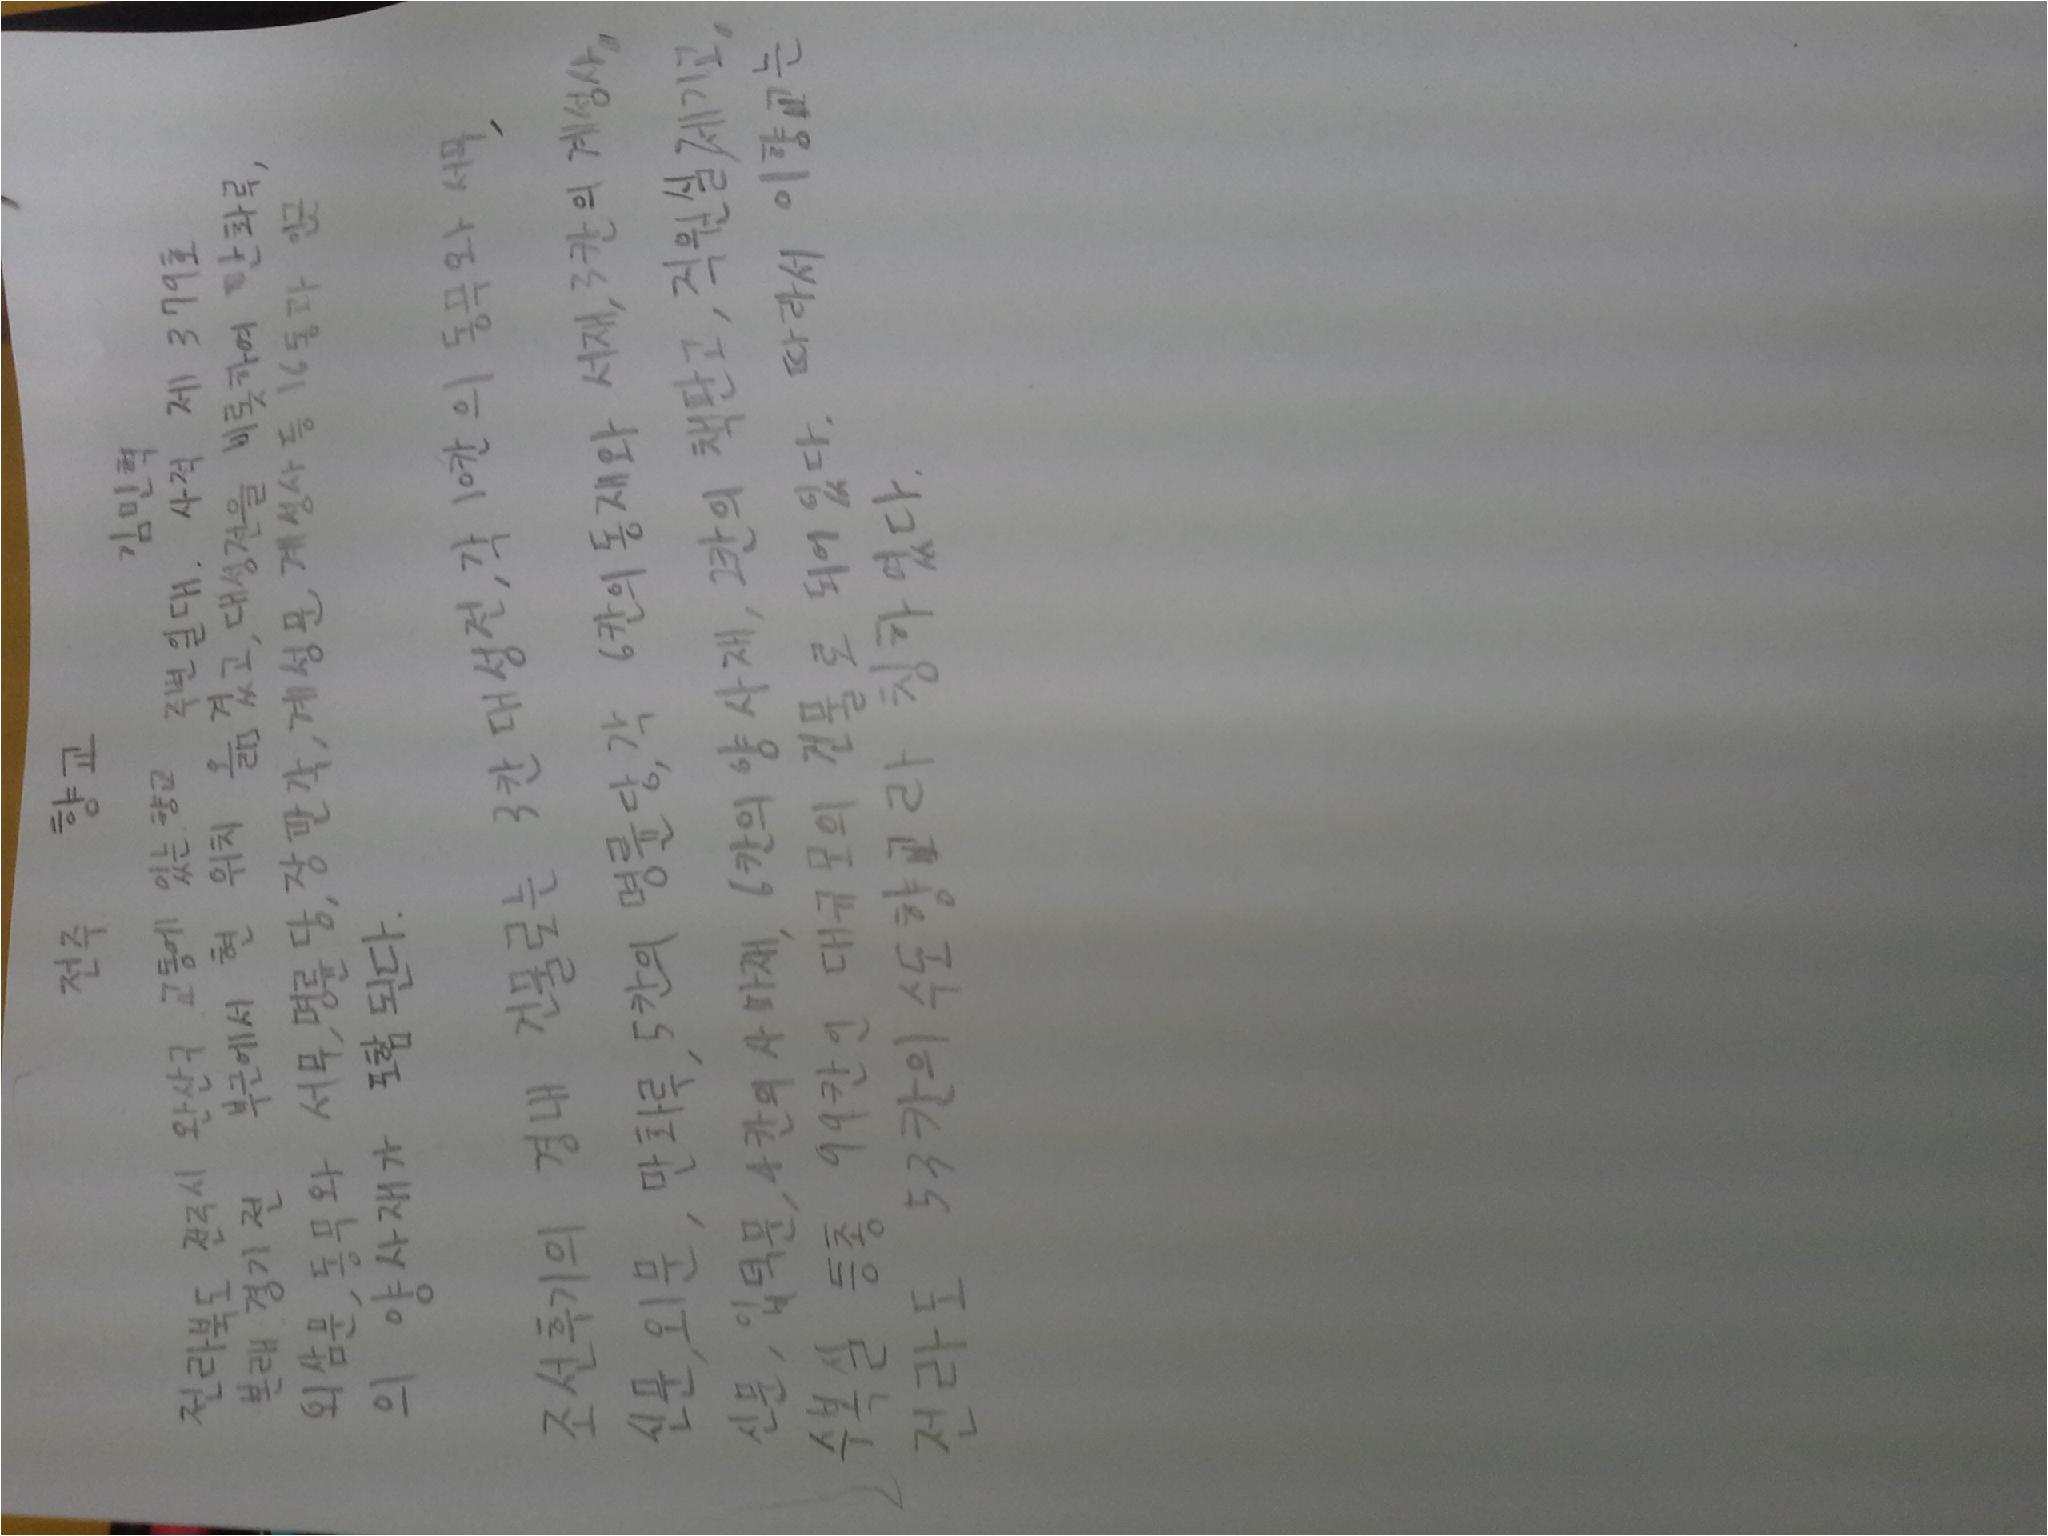 전주 향교
김민혁
전라북도 전주시 완산구 교동에 있는 향교 주변일대. 사적 제 379호
본래 경기전 부근에서 현 위치 옮겼고, 대성전을 비롯하여 만화루,
외삼문, 동무와 서무, 명륜당, 장판각, 계성문, 계성사 등 16동과 인근
의 양사재가 포함 된다.
조선후기의 경내 건물로는 3칸 대성전, 각 10칸의 동무와 서무,
신문, 외문, 만화루, 5칸의 명륜당, 각 6칸의 동재와 서재, 3칸의 계성사,
신문, 입덕문, 4칸의 사마재, 6칸의 양사재, 2칸의 책판고, 직원실, 제기고,
수복실 등 총 99칸인 대규모의 건물로 되어있다. 따라서 이향교는
전라도 53칸의 수도향교라 칭하였다.